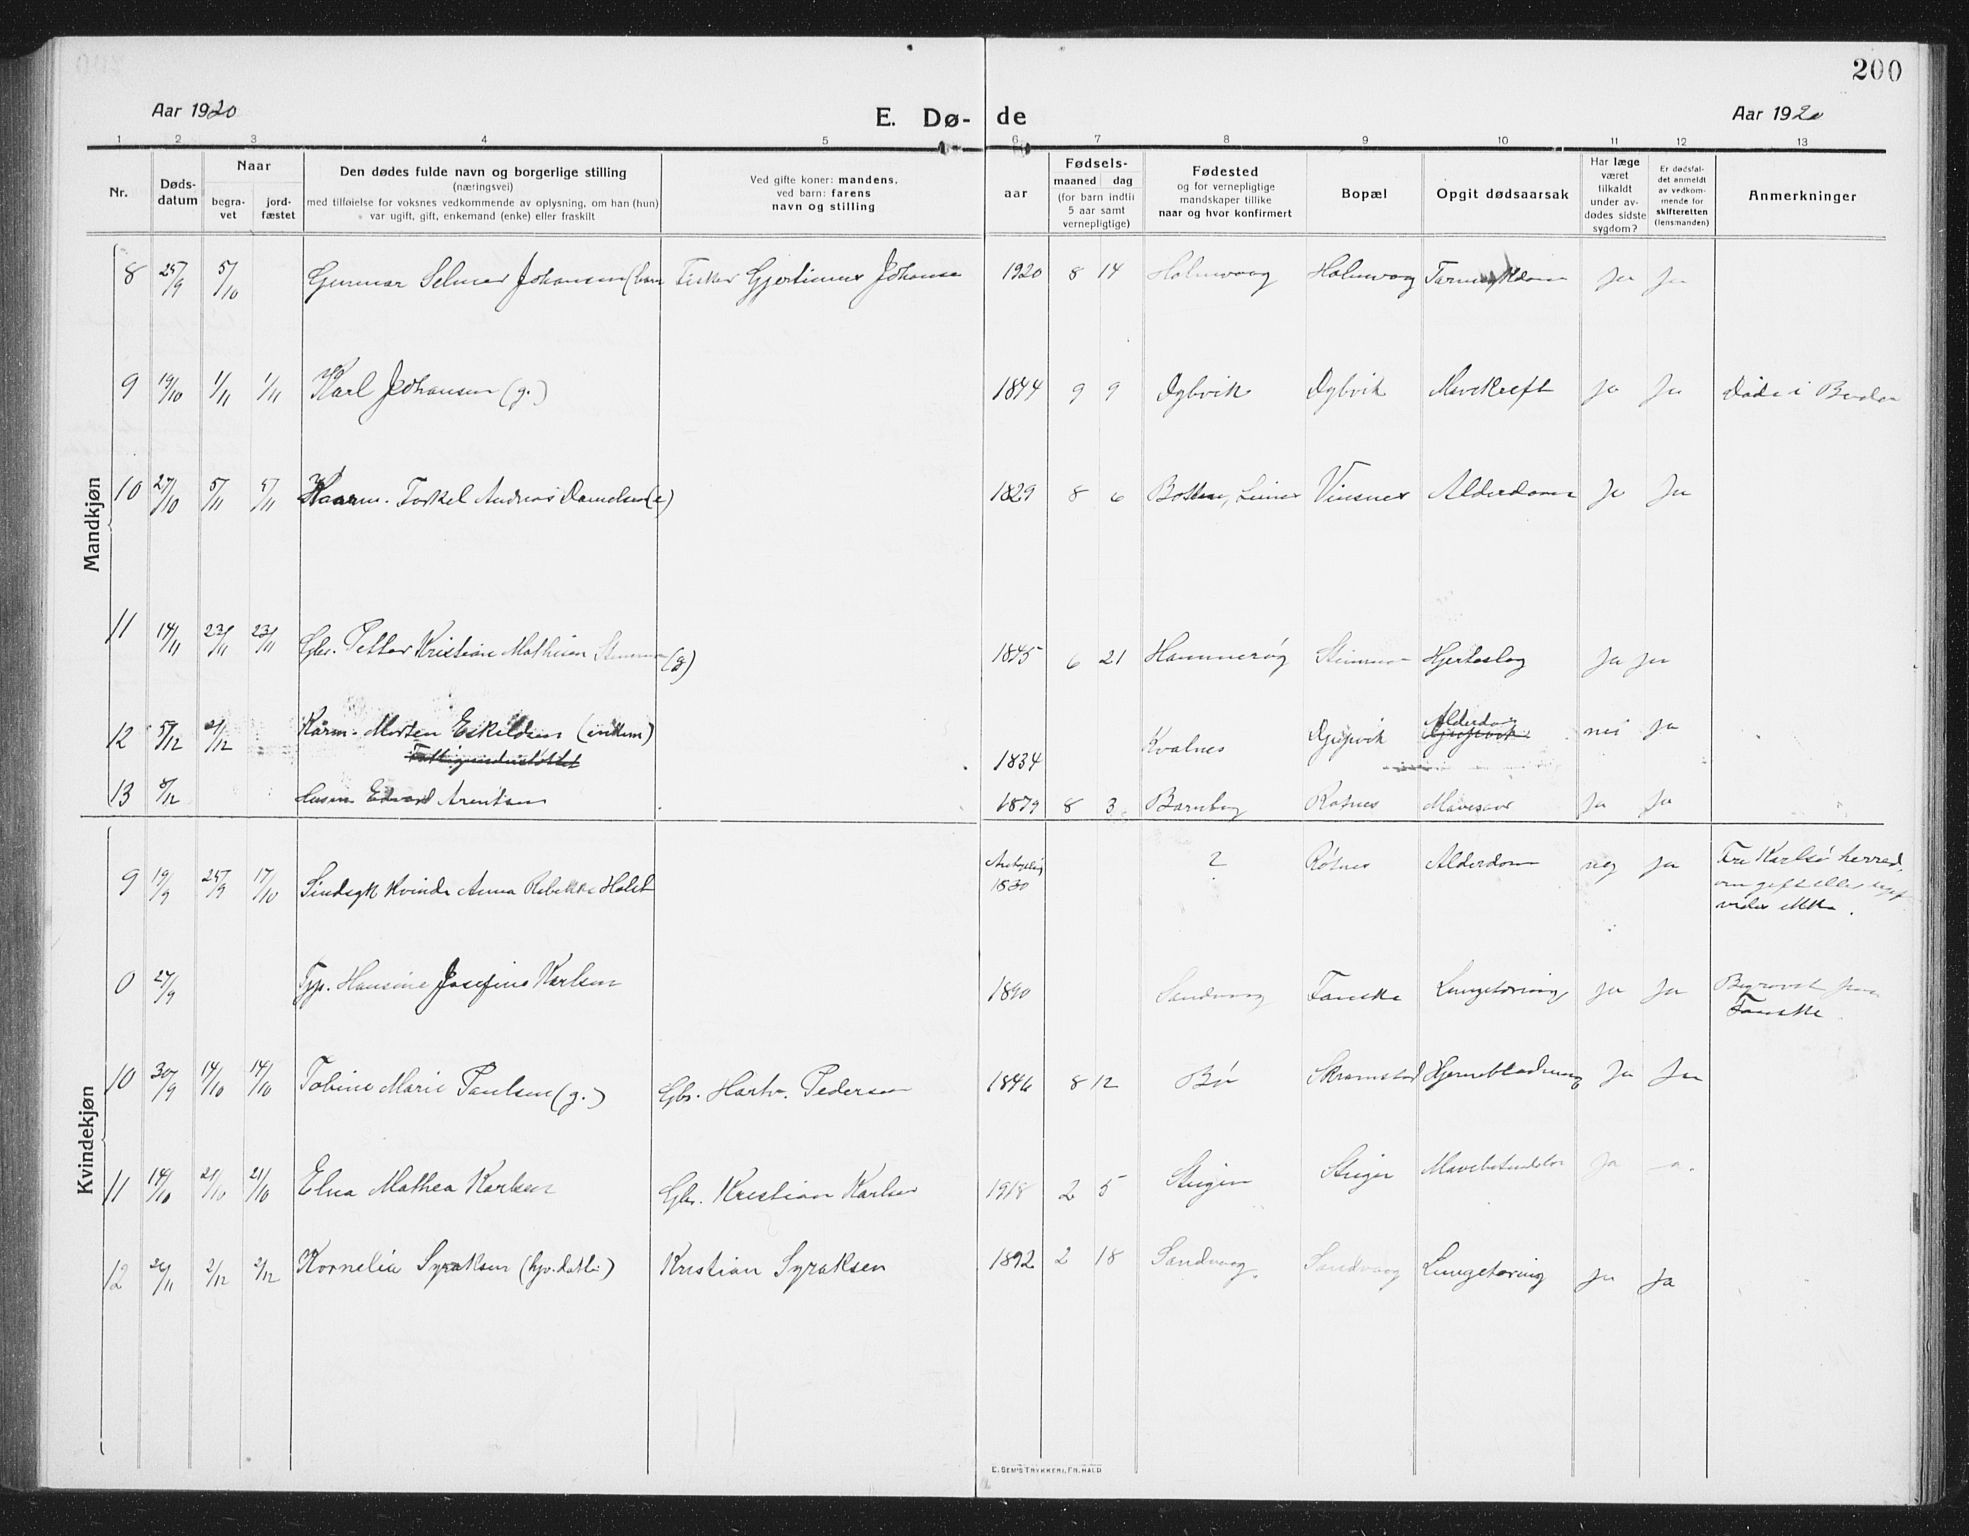 200
Aar 1920
E. Dø-
de
Aar 1920
1 2 3 4 5 6 7 8 9 10 11 12 13
Nr.
Døds-
datum
Naar
begra-
vet
jord-
fæstet
Den dødes fulde navn og borgerlige stilling
(næringsvei)
med tilføielse for voksnes vedkommende av oplysning, om han (hun)
var ugift, gift, enkemand (enke) eller fraskilt
Ved gifte koner: mandens,
ved barn: farens
navn og stilling
aar
Fødsels-
maaned dag
(for barn indtil
5 aar samt
vernepligtige)
Fødested
og for vernepligtige
mandskaper tillike
naar og hvor konfirmert
Bopæl
Opgit dødsaarsak
Har læge
været
tilkaldt
under av-
dødes sidste
sygdom?
Er dødsfal-
det anmeldt
av vedkom-
mende for
skifteretten
(lensmanden)
Anmerkninger
Mandkjøn
8 25/9 5/10 Gunnar Selmer Johansen (barn Fisker Gjertinus Johanse 1920 8 14 Holmvaag Holmvaag ja ja
9 19/10 1/11 1/11 Karl Johansen (g.) 1844 9 9 Dybvik Dybvik Mavekreft ja ja Døde i Bodø
10 27/10 5/11 5/11 Torkel Andreas Danielsen (e) 1829 8 6 Vinsnes Alderdom ja ja
11 14/11 23/11 23/11 Gbr. Petter Kristian Mathisen (g) 1845 6 21 Hammerøy Hjerteslag ja ja
12 5/12 2/12 Kårm. Morten Eskildsen (enkem) 1834 Kvalnes Djupvik Alderdom nei ja
Fattigunderstøttet
Djupvik
13 8/12 Edvard Arentsen 1879 8 3 Rotnes Mavesaar ja ja
Kvindekjøn
9 19/9 25/9 17/10 Sindsyk kvinde Anna Rebekka Holst 1830 ? Røtnes Alderdom nej ja Fra Karlsø herred,
om gift eller ugift
vides ikke.
0 27/9 Tjp. Hansine Josefine Karlsen 1890 Sandvaag Fauske Lungetæring ja ja Begravet paa
Fauske.
10 30/9 14/10 14/10 Tobine Marie Paulsen (g.) Gbr. Hartv. Pedersen 1846 8 12 Bø Skramstad Hjerneblødning ja ja
11 14/10 21/10 21/10 Elna Mathea Karlsen Gbr. Kristian Karlsen 1918 2 5 Steigen Steigen ja
12 26/11 2/12 2/12 Kornelia Syraksen Kristian Syraksen 1892 2 18 Sandvaag. Sandvaag Lungetæring ja ja
E. SEM'S TRYKKERI, FR.HALD